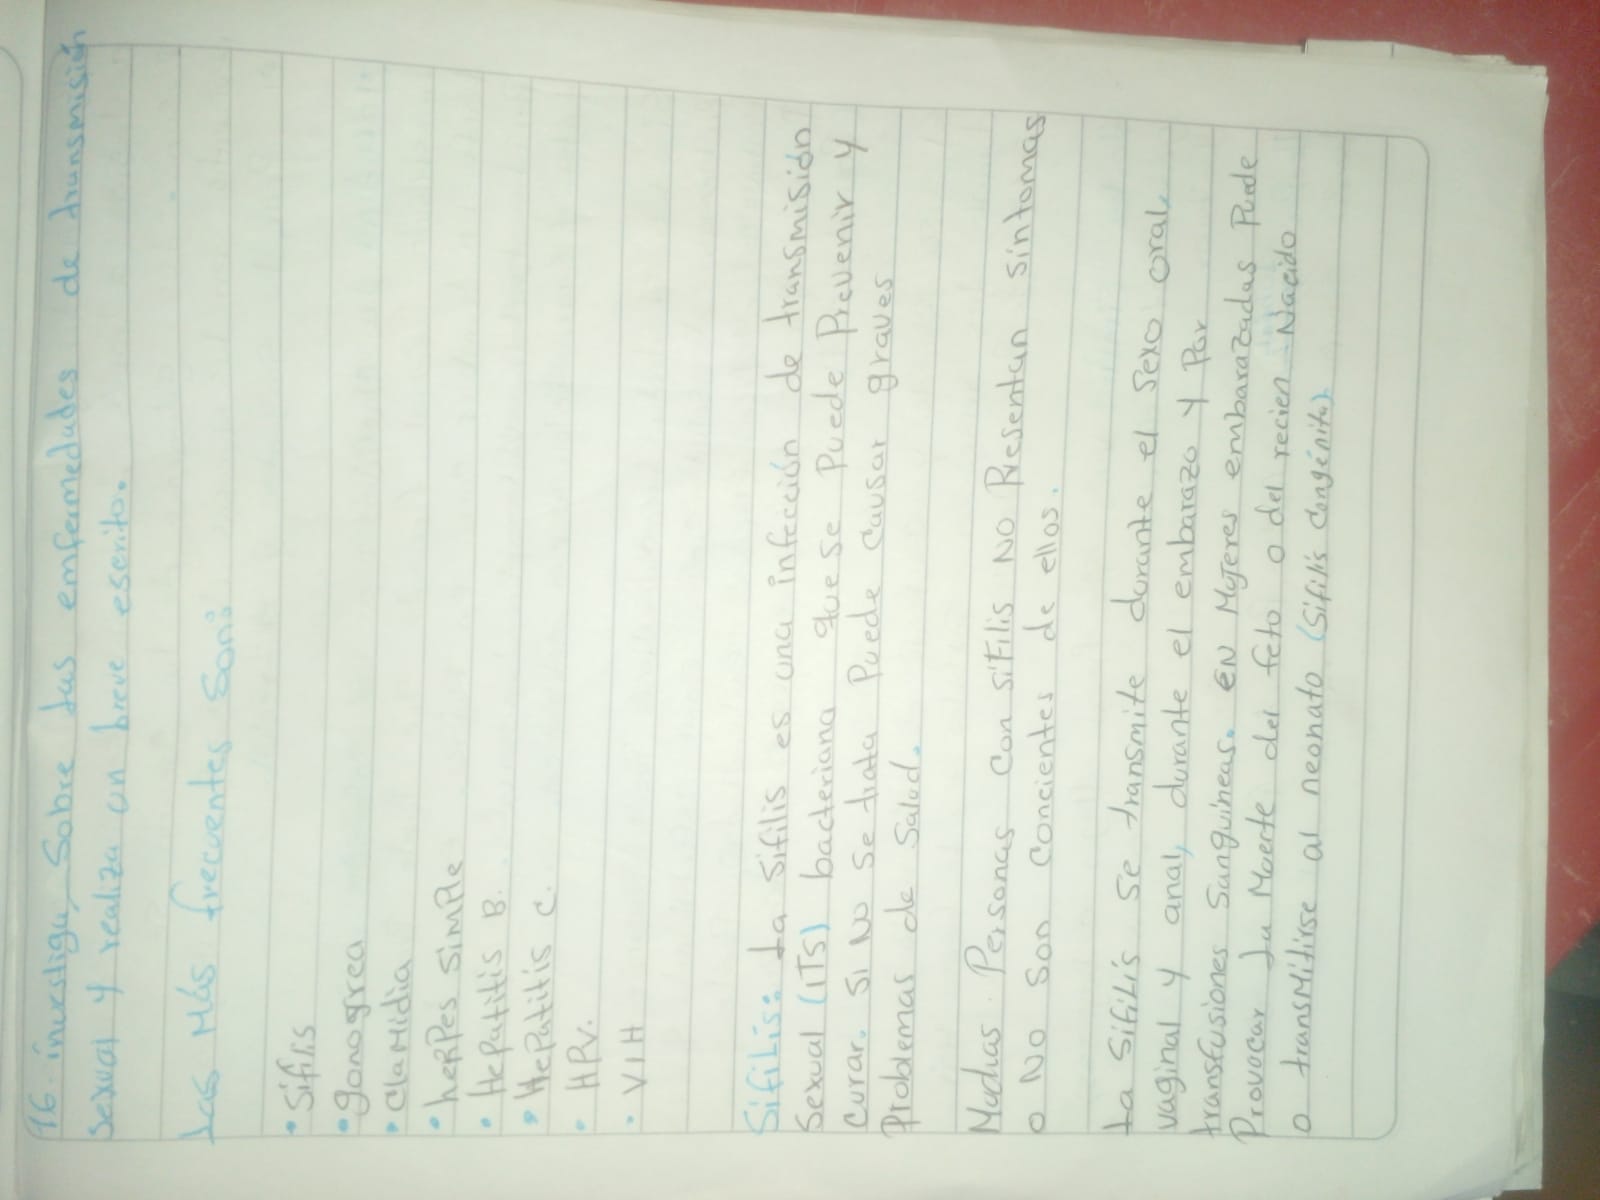 16. investiga, Sobre las emfermedades de transmisión
Sexual y realiza un breve escrito.
Las Más frecuentes Son:
• Sífilis
• gonogrea
• ClaMidia
• herpes Simple
• Hepatitis B.
• Hepatitis C.
• HPV.
• VIH
SífiLis: La Sífilis es una infección de transmisión
Sexual (ITS) bacteriana que se Puede Prevenir y
Curar. Si No Se trata Puede Causar graves
Problemas de Salud.
Muchas Personas Con síFilis No Presentan síntomas
o No Son Concientes de ellos.
La SífiLis Se transmite durante el Sexo oral,
vaginal y anal, durante el embarazo y Por
transfusiones Sanguíneas. eN Mujeres embarazadas Puede
Provocar La Muerte del feto o del recien Nacido
o transMitirse al neonato (Sífilis Congénita).